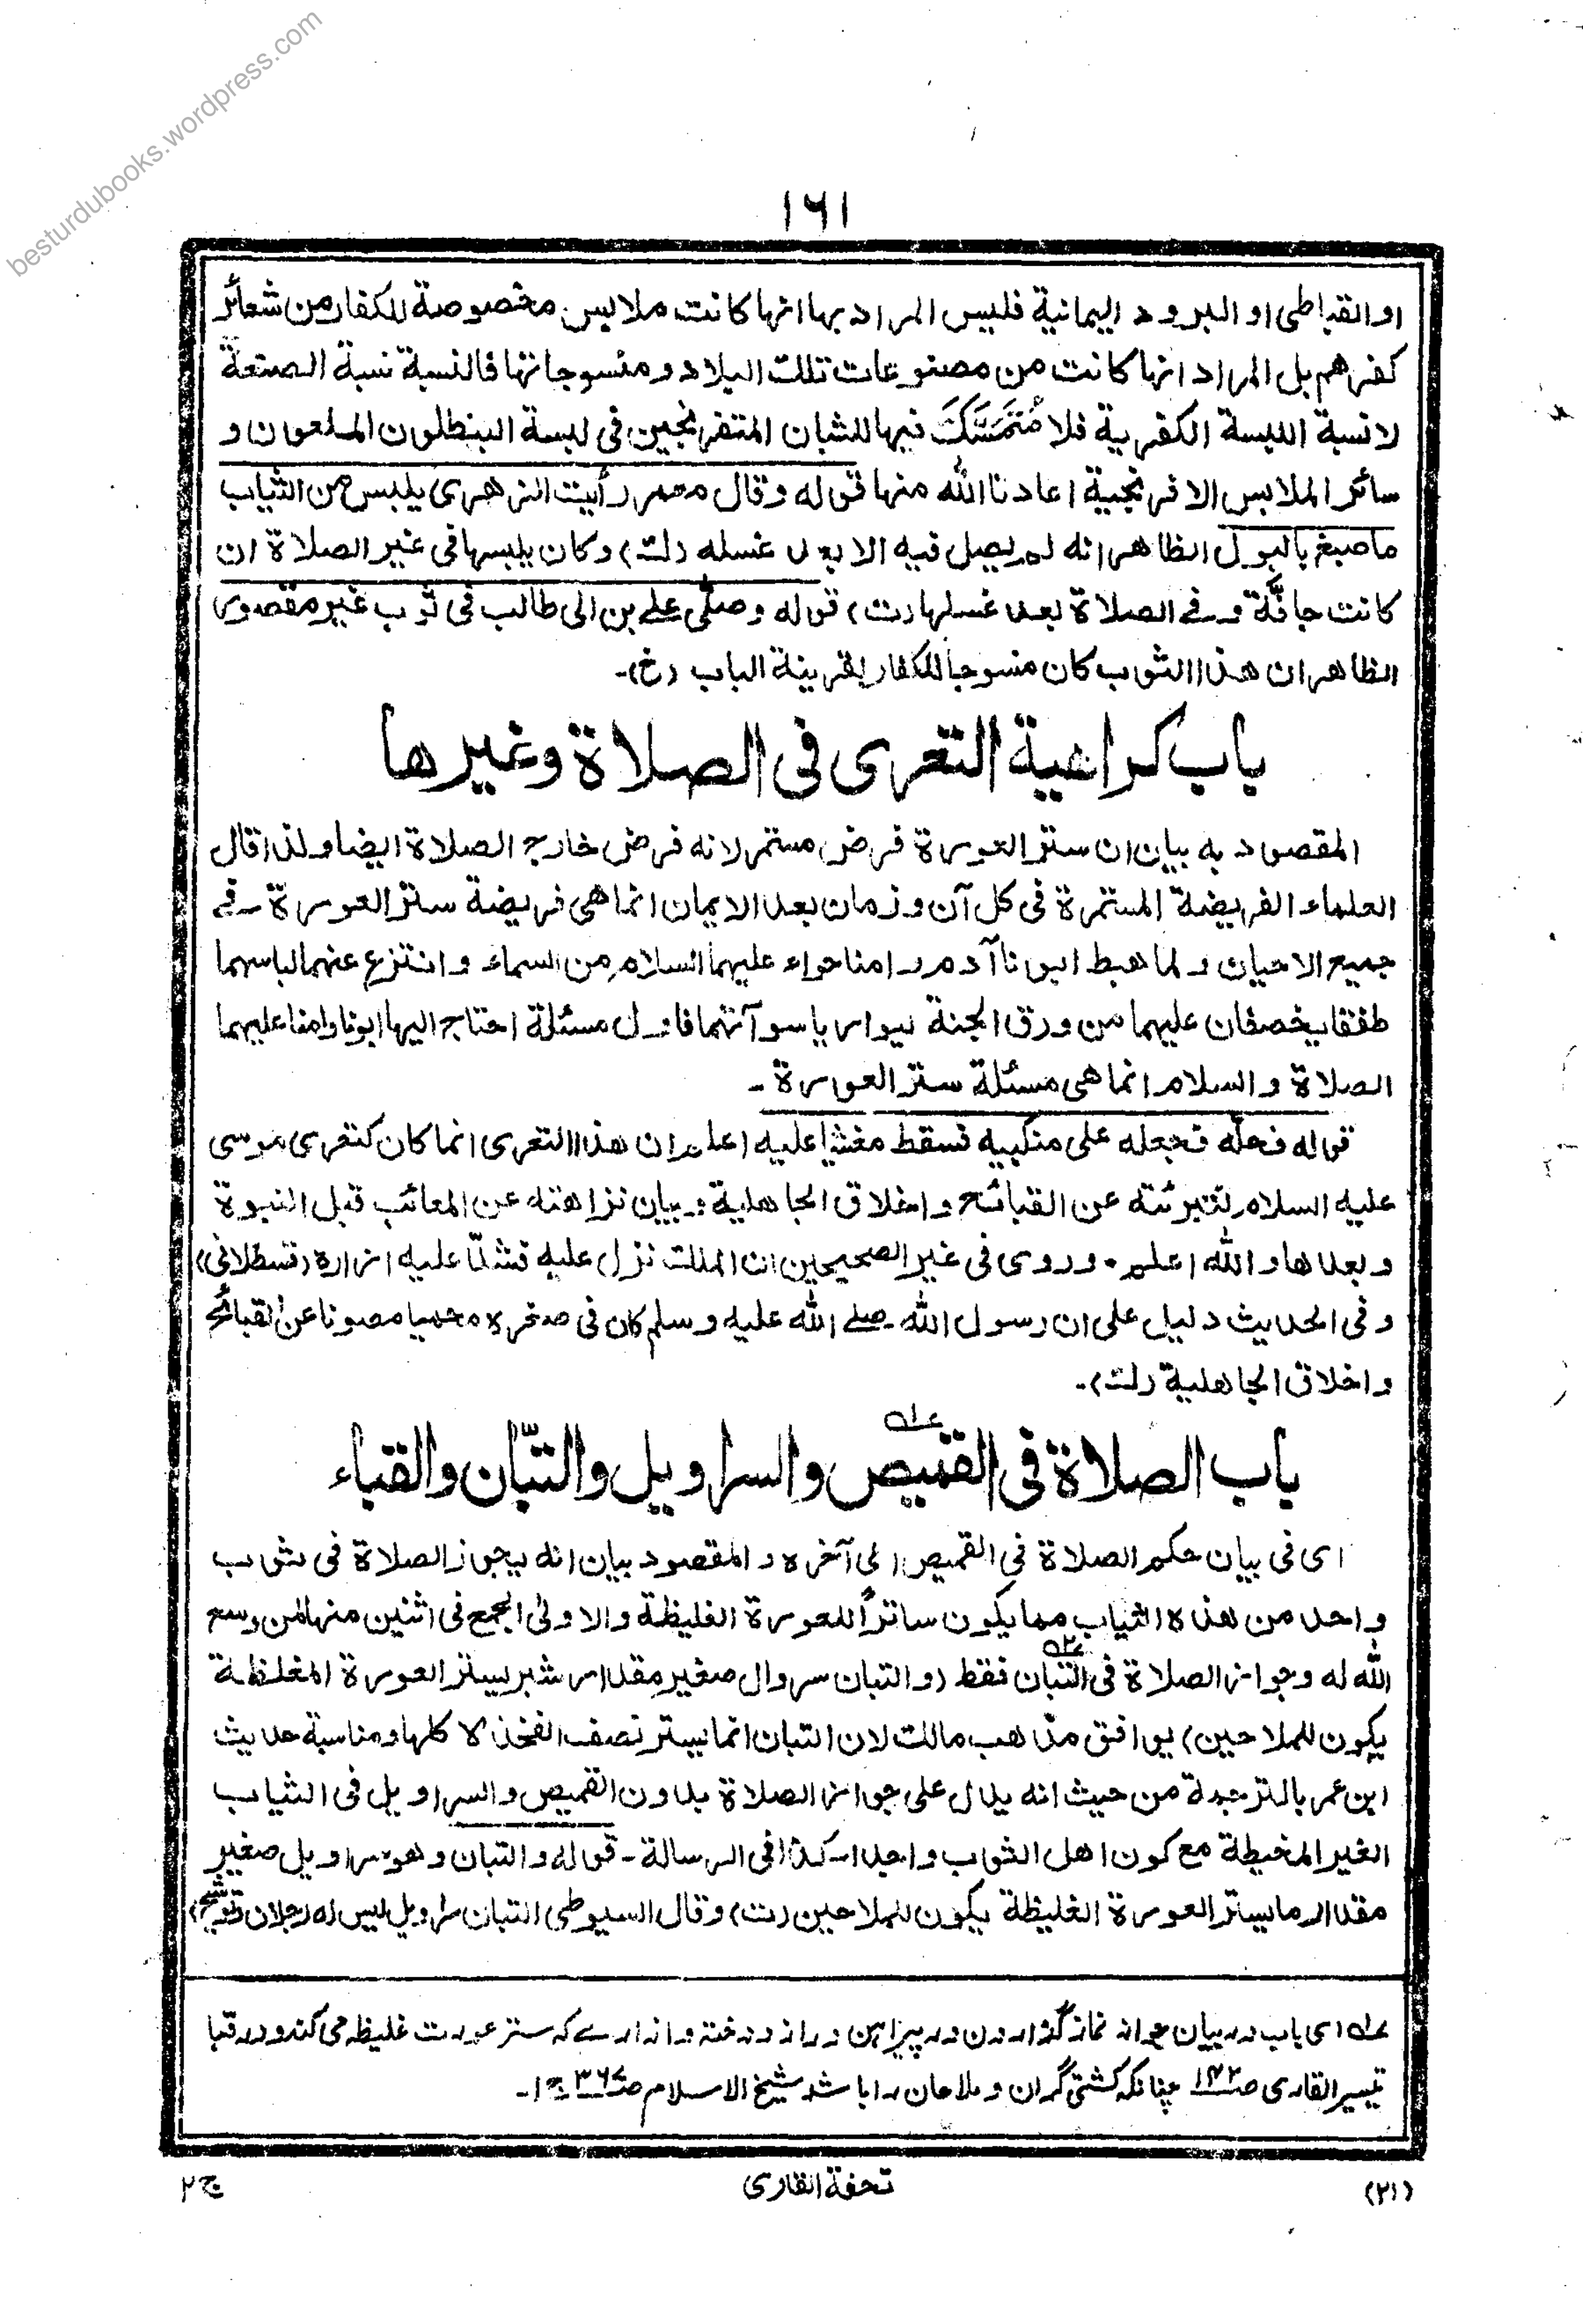 besturdubooks.wordpress.com
١٦١
او القباطى او البرود اليمانية فليس المراد بها انها كانت ملابس مخصوصة للكفار من شعائر
كفرهم بل المراد انها كانت من مصنوعات تلك البلاد و منسوجاتها فالنسبة نسبة الصنعة
لا نسبة اللبسة الكفرية فلا مُتَمَسَّكَ فيها للشبان المتفرنجين فى لبسة البنطلون الملعون و
سائر الملابس الافرنجية اعاذنا الله منها قوله وقال معمر رأيت الزهرى يلبس من الثياب
ما صبغ بالبول الظاهر انه لم يصل فيه الا بعد غسله (ك) وكان يلبسها فى غير الصلاة ان
كانت جافّة و فى الصلاة بعد غسلها (ت) قوله وصلّى على بن ابى طالب فى ثوب غير مقصور
الظاهر ان هذا الثوب كان منسوجا للكفار لقرينة الباب (خ)-
باب كراهية التعرى فى الصلاة وغيرها
المقصود به بيان ان ستر العورة فرض مستمر لانه فرض خارج الصلاة ايضا ولذا قال
العلماء الفريضة المستمرة فى كل آن و زمان بعد الايمان انما هى فريضة ستر العورة - فى
جميع الاحيان و لما هبط ابونا آدم و امنا حواء عليهما السلام من السماء و انتزع عنهما لباسهما
طفقا يخصفان عليهما من ورق الجنة ليواريا سوآتهما فاول مسئلة احتاج اليها ابونا وامنا عليهما
الصلاة و السلام انما هى مسئلة ستر العورة -
قوله فحلّه فجعله على منكبيه فسقط مغشيا عليه اعلم ان هذا التعرى انما كان كتعرى موسى
عليه السلام لتبرئته عن القبائح و اخلاق الجاهلية و بيان نزاهته عن المعائب قبل النبوة
و بعدها و الله اعلم • و روى فى غير الصحيحين ان الملك نزل عليه فشدّ عليه ازاره (قسطلانى)
و فى الحديث دليل على ان رسول الله صلى الله عليه و سلم كان فى صغره محميا مصونا عن القبائح
و اخلاق الجاهلية (ك)-
باب الصلاة فى القميص والسراويل والتبّان والقباء
اى فى بيان حكم الصلاة فى القميص الى آخره و المقصود بيان انه يجوز الصلاة فى ثوب
واحد من هذه الثياب مما يكون ساتراً للعورة الغليظة والاولى الجمع فى اثنين منها لمن وسع
الله له وجواز الصلاة فى التبان فقط (و التبان سروال صغير مقدار شبر يستر العورة المغلظة
يكون للملاحين) يوافق مذهب مالك لان التبان انما يستر نصف الفخذ لا كلها و مناسبة حديث
ابن عمر بالترجمة من حيث انه يدل على جواز الصلاة بدون القميص والسراويل فى الثياب
الغير المخيطة مع كون اهل الثواب واحدا - كذا فى الرسالة - قوله و التبان و هو سراويل صغير
مقدار ما يستر العورة الغليظة يكون للملاحين (ت) وقال السيوطى التبان سراويل ليس له رجلان (توشيح)
اى باب در بيان جواز نماز گزاردن در پيراهن و در ازار دوخته و ازارے كه ستر عورت غليظه مى كند و در قبا
تيسير القارى صـ١٤٢ چنانكه كشتى گران و ملاحان را باشد شيخ الاسلام صـ٣٦٤ ج١-
(٢١)
تحفة القارى
ج ٢